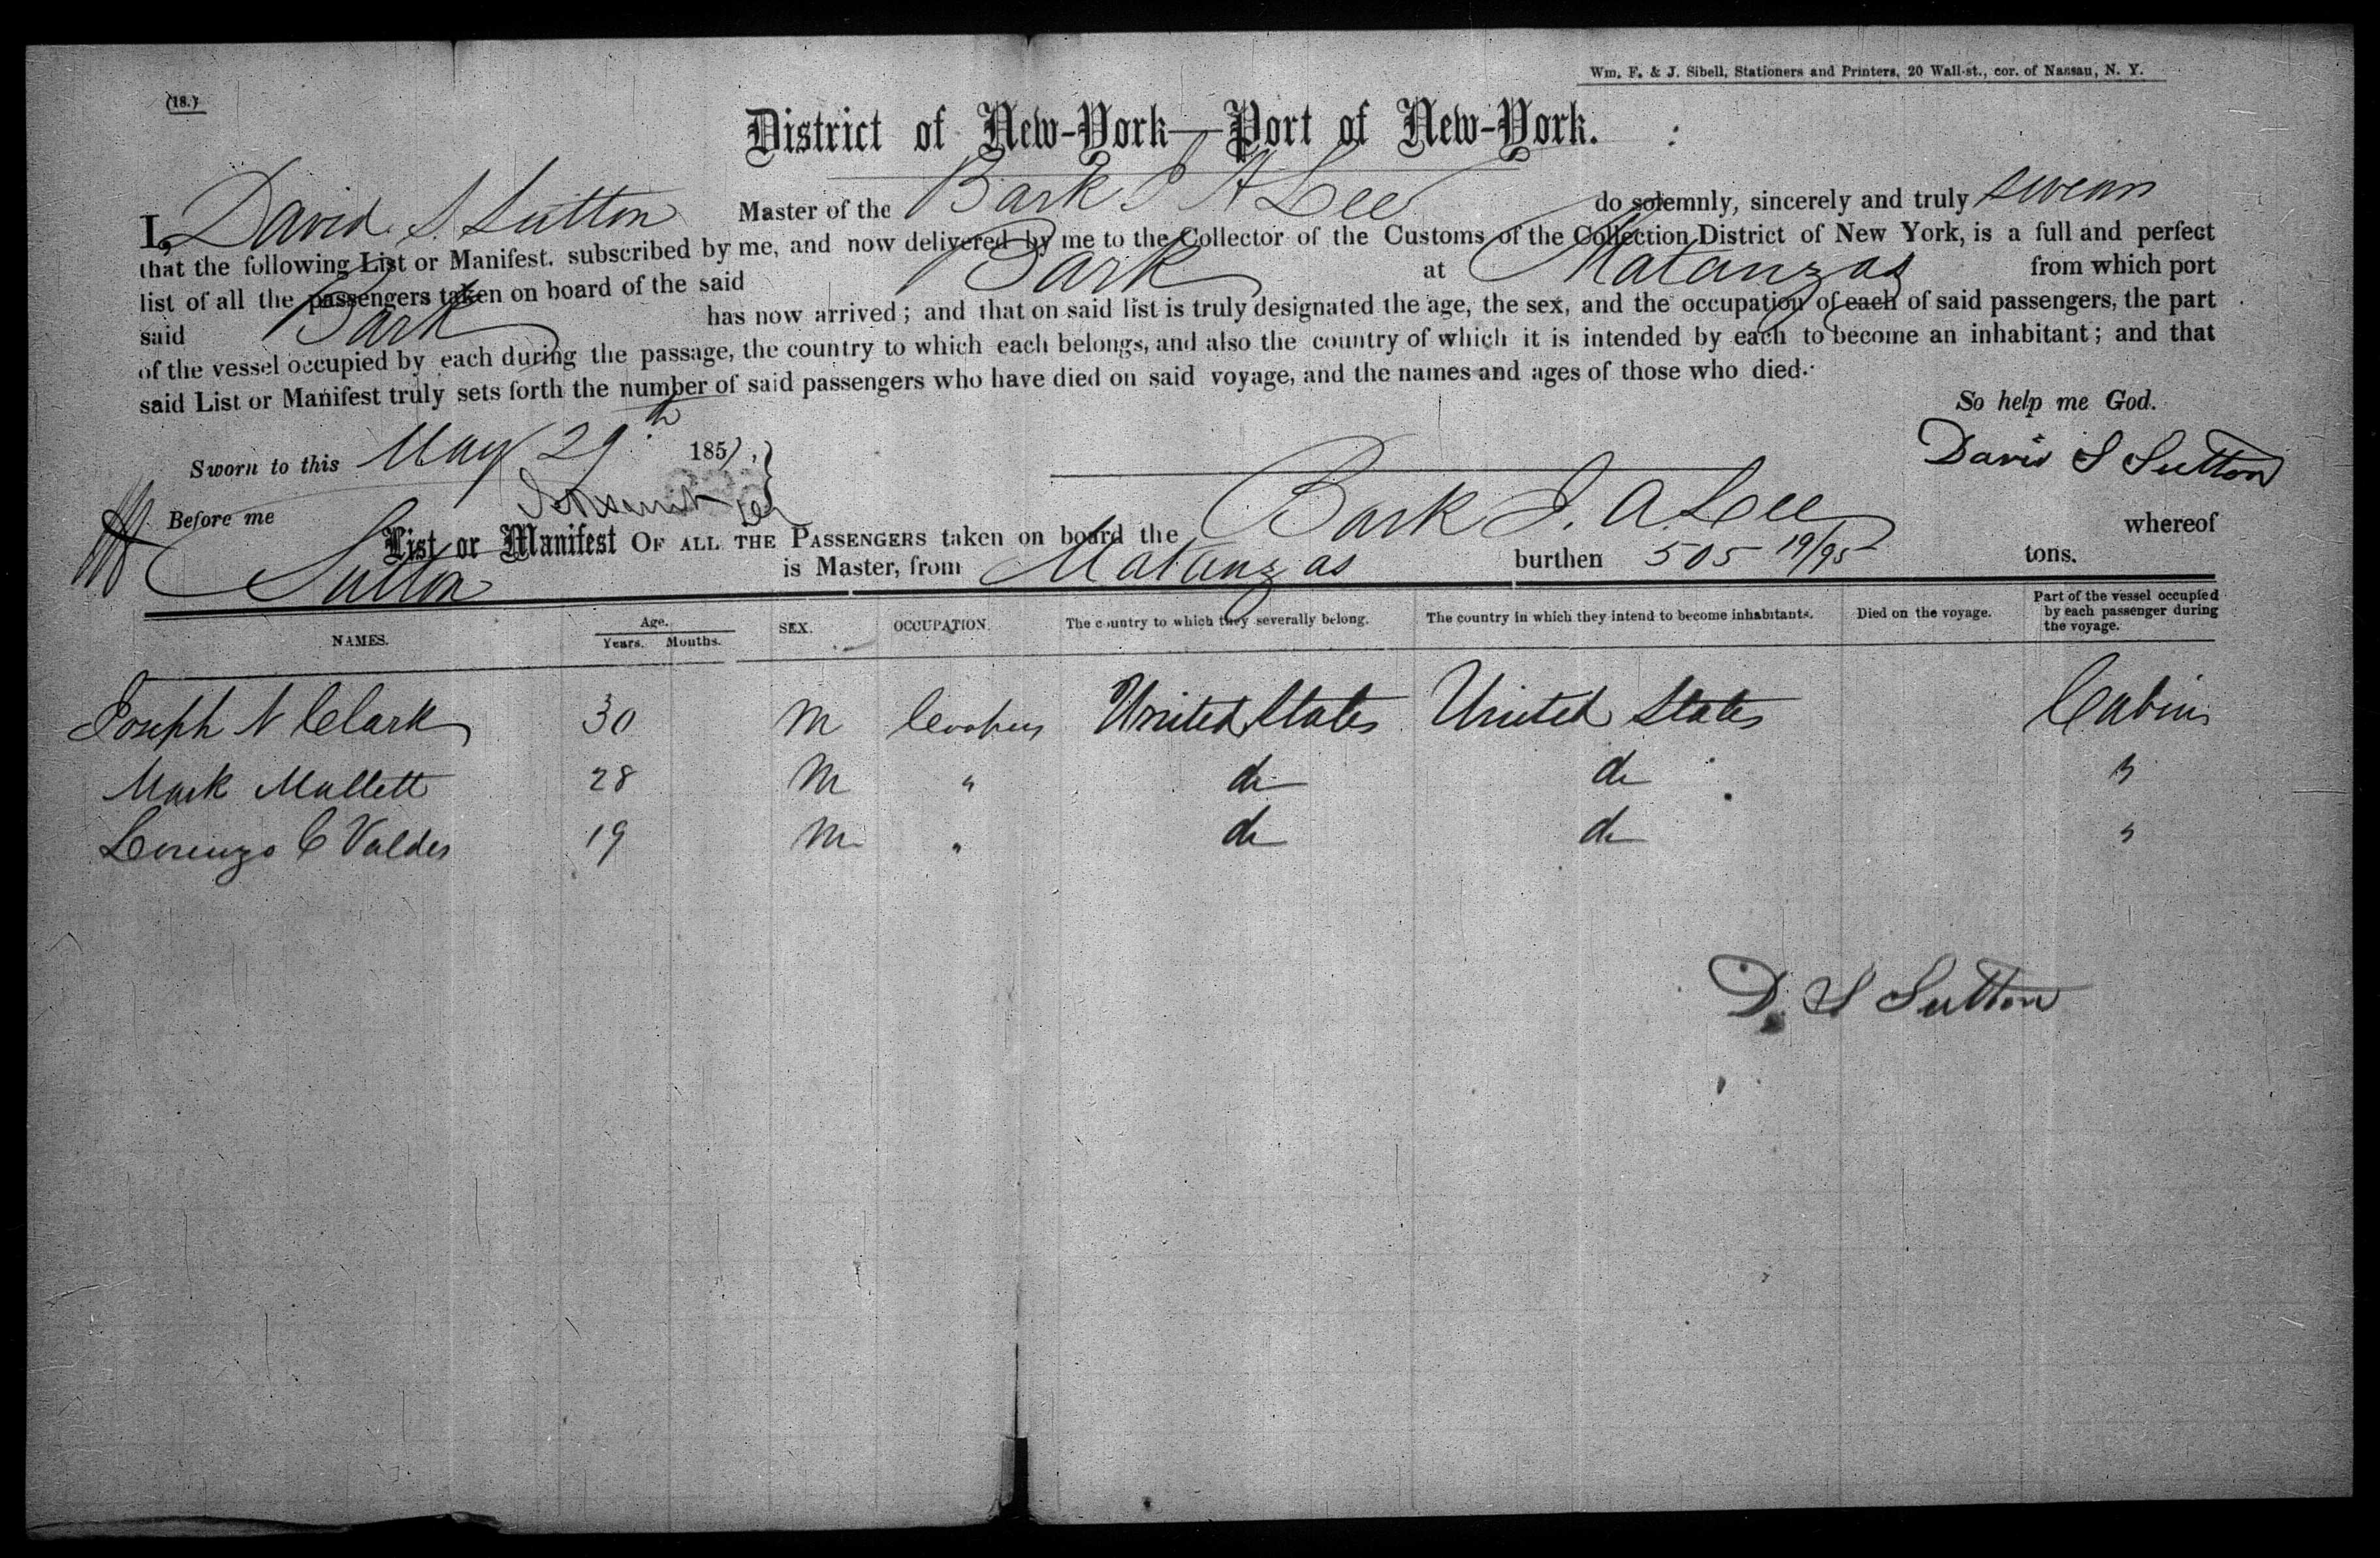 Wm. F. & J. Sibell, Stationers and Printers, 20 Wall-st., cor. of Nassau, N. Y.
(18.)
District of New-York—Port of New-York.
I, David S. Sutton Master of the Bark J A Lee do solemnly, sincerely and truly swear
that the following List or Manifest. subscribed by me, and now delivered by me to the Collector of the Customs of the Collection District of New York, is a full and perfect
list of all the passengers taken on board of the said Bark at Matanzas from which port
said Bark has now arrived; and that on said list is truly designated the age, the sex, and the occupation of each of said passengers, the part
of the vessel occupied by each during the passage, the country to which each belongs, and also the country of which it is intended by each to become an inhabitant; and that
said List or Manifest truly sets forth the number of said passengers who have died on said voyage, and the names and ages of those who died.
So help me God.
Sworn to this May 29th 1857,
David S Sutton
Before me
List or Manifest OF ALL THE PASSENGERS taken on board the Bark J. A. Lee whereof
Sutton is Master, from Matanzas burthen 505 19/95 tons.
NAMES. Age. Years. Months. SEX. OCCUPATION. The country to which they severally belong. The country in which they intend to become inhabitants. Died on the voyage. Part of the vessel occupied by each passenger during the voyage.
Joseph N Clark 30 M Coopers United States United States Cabin
Mark Mallett 28 M " do do "
Lorenzo C Valdes 19 M " do do "
D. S Sutton